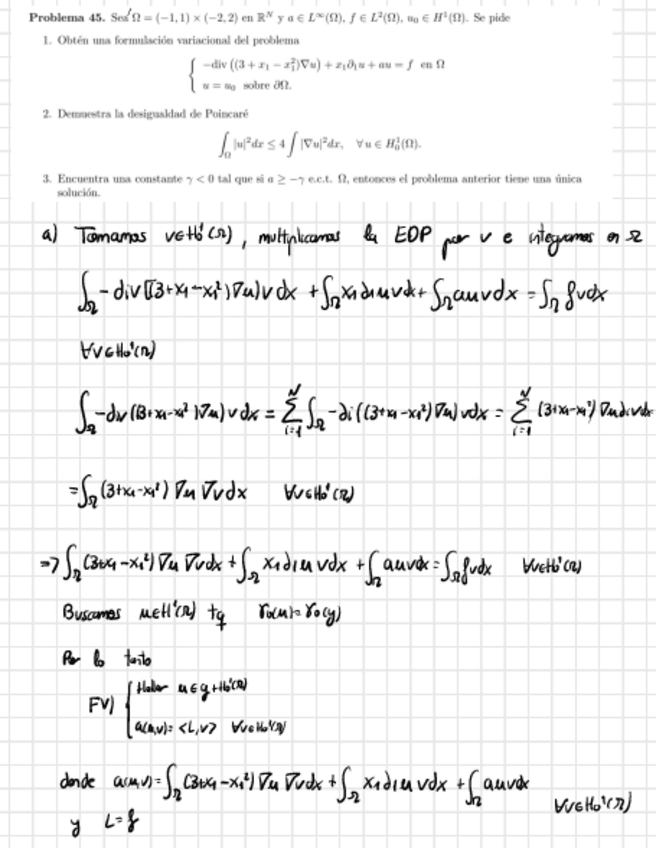 Problema 45. Sea Ω = (−1, 1) × (−2, 2) en ℝ^N y a ∈ L^∞(Ω), f ∈ L²(Ω), u₀ ∈ H¹(Ω). Se pide
1. Obtén una formulación variacional del problema
{ −div ((3 + x₁ − x₁²)∇u) + x₁∂₁u + au = f en Ω
u = u₀ sobre ∂Ω.
2. Demuestra la desigualdad de Poincaré
∫_Ω |u|²dx ≤ 4 ∫ |∇u|²dx, ∀ u ∈ H₀¹(Ω).
3. Encuentra una constante γ < 0 tal que si a ≥ −γ e.c.t. Ω, entonces el problema anterior tiene una única
solución.
a) Tomamos v∈H₀¹(Ω), multiplicamos la EDP por v e integramos en Ω
∫_Ω −div((3+x₁−x₁²)∇u)v dx + ∫_Ω x₁∂₁u v dx + ∫_Ω auv dx = ∫_Ω fv dx
∀v∈H₀¹(Ω)
∫_Ω −div((3+x₁−x₁²)∇u)v dx = Σ_{i=1}^N ∫_Ω −∂i((3+x₁−x₁²)∇u)v dx = Σ_{i=1}^N (3+x₁−x₁²)∇u∂iv dx
= ∫_Ω (3+x₁−x₁²)∇u ∇v dx ∀v∈H₀¹(Ω)
⇒ ∫_Ω (3+x₁−x₁²)∇u ∇v dx + ∫_Ω x₁∂₁u v dx + ∫_Ω auv dx = ∫_Ω fv dx ∀v∈H₀¹(Ω)
Buscamos u∈H¹(Ω) tq γ₀(u)=γ₀(g)
Por lo tanto
FV) { Hallar u∈g+H₀¹(Ω)
a(u,v)=<L,v> ∀v∈H₀¹(Ω)
donde a(u,v)=∫_Ω (3+x₁−x₁²)∇u ∇v dx + ∫_Ω x₁∂₁u v dx + ∫_Ω auv dx
∀v∈H₀¹(Ω)
y L=f